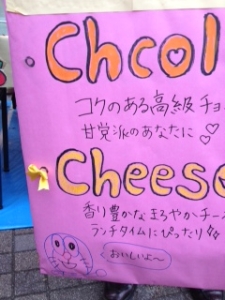 Chcol
コクのある高級チョ
甘党派のあなたに♡
Cheese
香り豊かなまろやかチー
ランチタイムにぴったり!!
おいしいよ〜